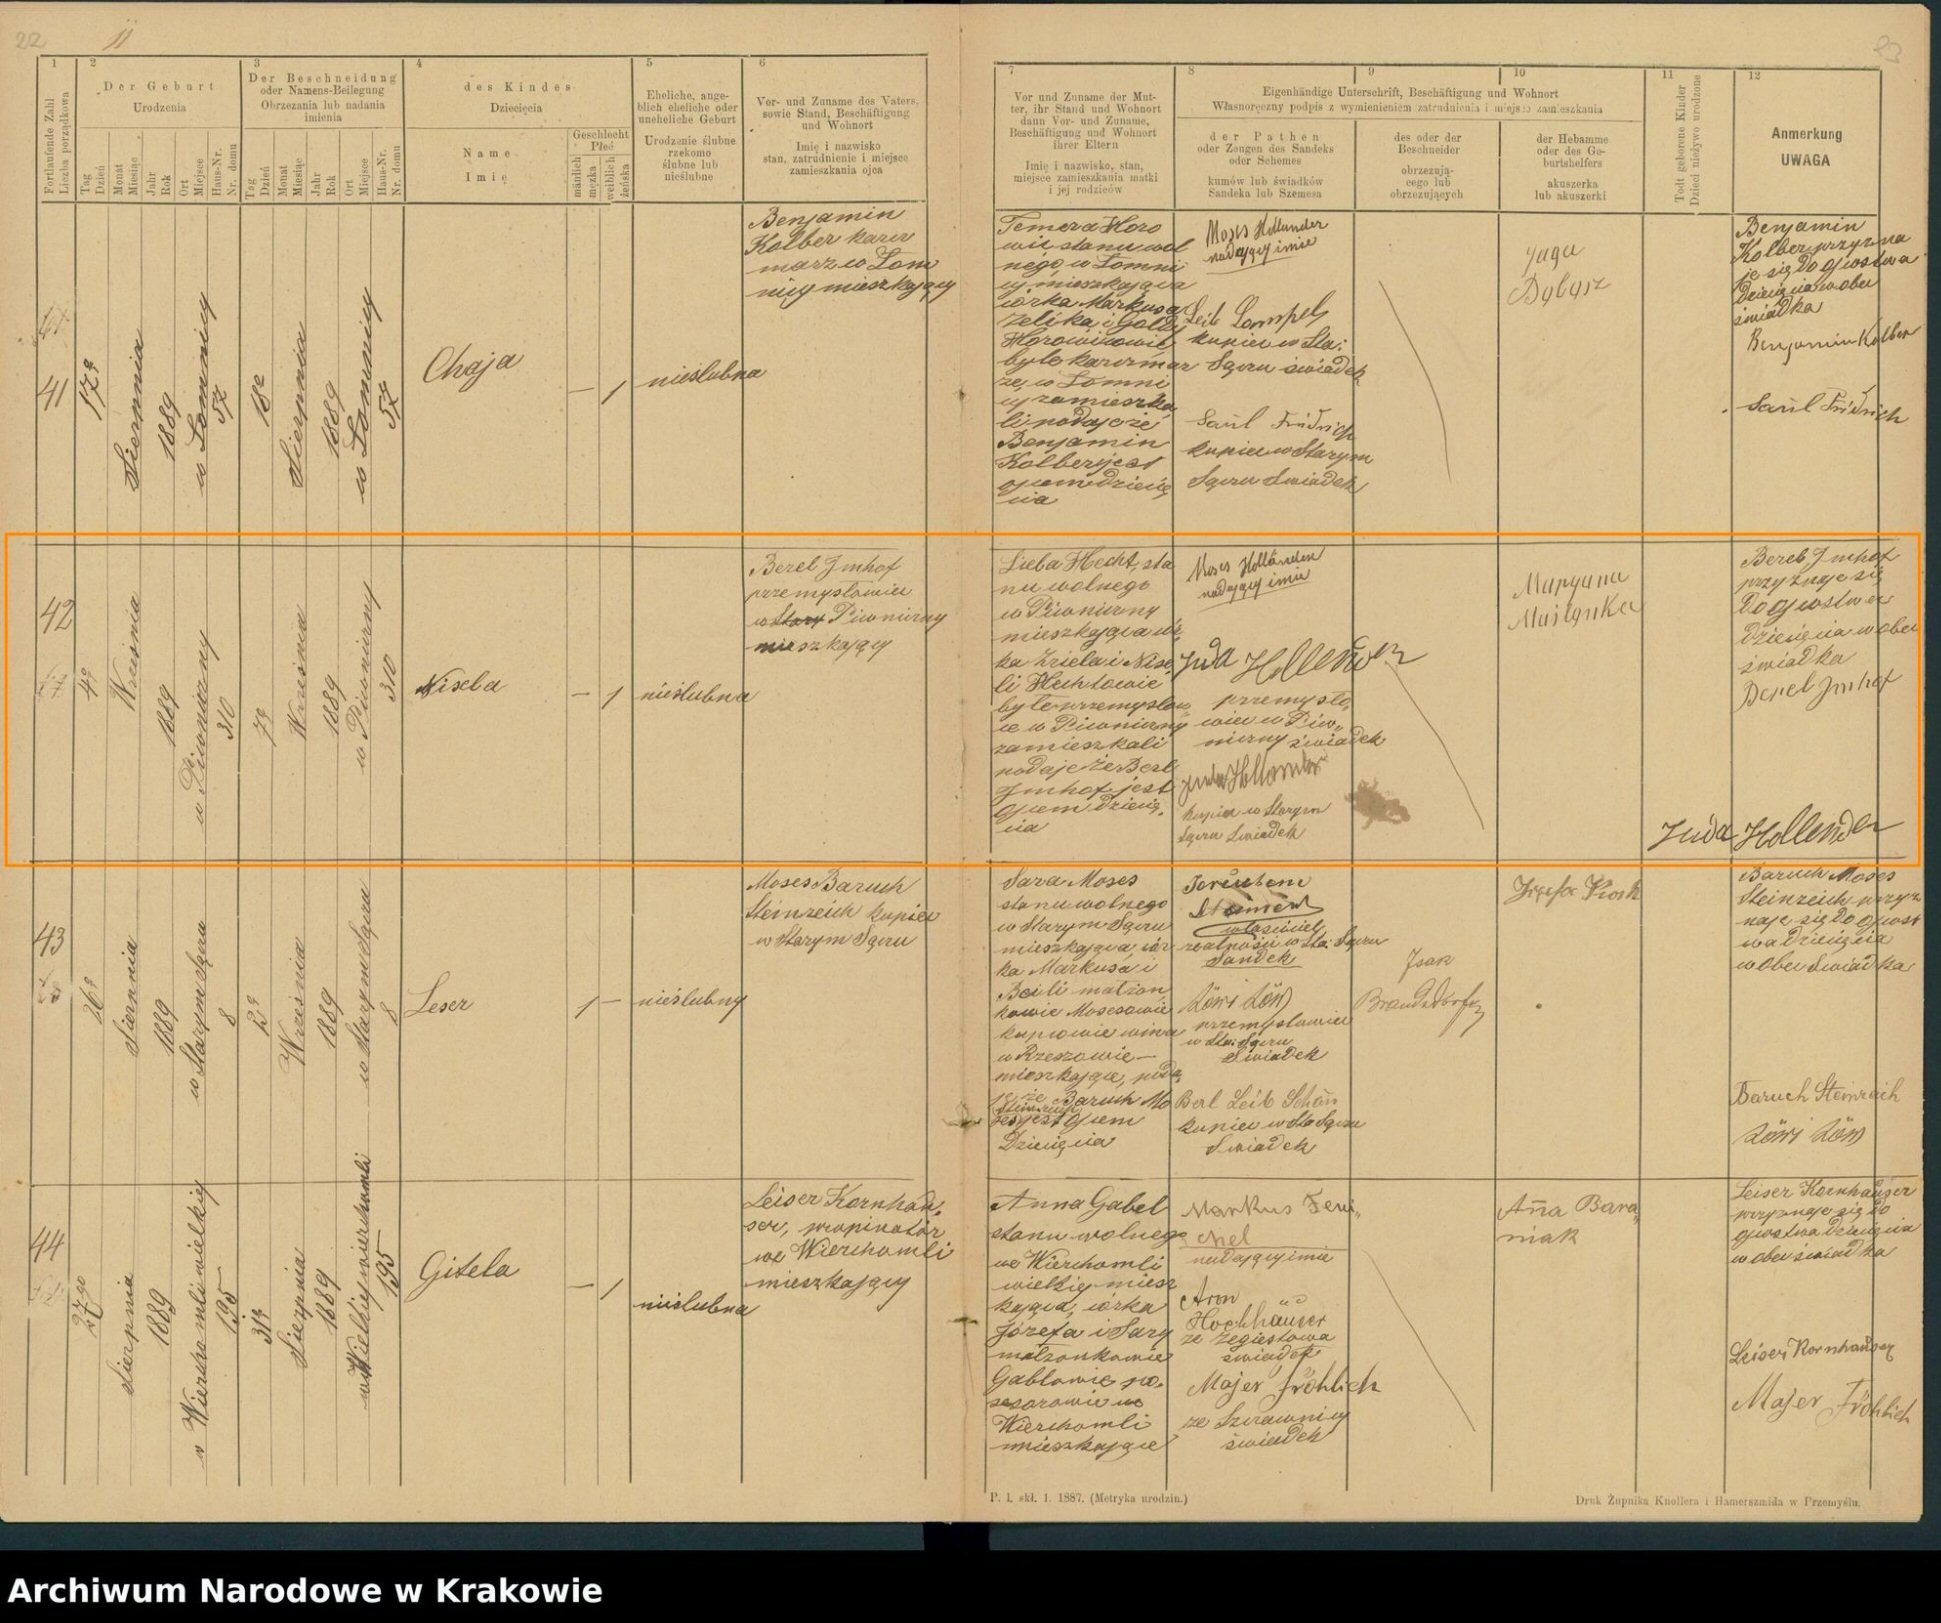 22
11
23
1
2
3
4
5
6
7
8
9
10
11
12
Fortlaufende Zahl
Liczba porządkowa
Der Geburt
Urodzenia
Tag
Dzień
Monat
Miesiąc
Jahr
Rok
Ort
Miejsce
Haus-Nr.
Nr. domu
Der Beschneidung
oder Namens-Beilegung
Obrzezania lub nadania
imienia
Tag
Dzień
Monat
Miesiąc
Jahr
Rok
Ort
Miejsce
Haus-Nr.
Nr. domu
des Kindes
Dziecięcia
Name
Imię
Geschlecht
Płeć
männlich
męzka
weiblich
żeńska
Eheliche, ange-
blich eheliche oder
uneheliche Geburt
Urodzenie ślubne
rzekomo
ślubne lub
nieślubne
Vor- und Zuname des Vaters,
sowie Stand, Beschäftigung
und Wohnort
Imię i nazwisko
stan, zatrudnienie i miejsce
zamieszkania ojca
Vor und Zuname der Mut-
ter, ihr Stand und Wohnort
dann Vor- und Zuname,
Beschäftigung und Wohnort
ihrer Eltern
Imię i nazwisko, stan,
miejsce zamieszkania matki
i jej rodziców
Eigenhändige Unterschrift, Beschäftigung und Wohnort
Własnoręczny podpis z wymienieniem zatrudnienia i miejsca zamieszkania
der Pathen
oder Zeugen des Sandeks
oder Schemes
kumów lub świadków
Sandeka lub Szemesa
des oder der
Beschneider
obrzezują-
cego lub
obrzezujących
der Hebamme
oder des Ge-
burtshelfers
akuszerka
lub akuszerki
Todt geborene Kinder
Dzieci nieżywo urodzone
Anmerkung
UWAGA
41
17go
Sierpnia
1889
w Łomnicy
57
18go
Sierpnia
1889
w Łomnicy
57
Chaja
— 1
nieślubna
Benjamin
Kolber karcz
marz w Łom
nicy mieszkający
Temera Horo
wic stanu wol
nego w Łomni
cy mieszkająca
córka Markusa
Zelika i Goldy
Horowiczowie
byłe karczmar
ze, w Łomni
cy zamieszka
li podaje że
Benjamin
Kolber jest
ojcem dziecię
cia
Moses Hollander
nadający imie
Leib Lompel
kupiec w Sta:
Sączu świadek
Saul Fridrich
kupiec w Starym
Sączu Swiadek
Jaga
Dybysz
Benjamin
Kolber przyzna
je się do ojcostwa
dziecięcia w obec
świadka
Benjamin Kolber
Saul Fridrich
42
4go
Września
1889
w Piwniczny
310
7go
Września
1889
w Piwniczny
310
Nisela
— 1
nieślubna
Berel Imhof
przemysłowiec
w Stary Piwniczny
mieszkający
Lieba Hecht, sta
nu wolnego
w Piwniczny
mieszkająca cór
ka Zriela i Nise
li Hechtowie
byłe przemysłow
ce w Piwniczny
zamieszkali
podaje że Berl
Imhof jest
ojcem dziecię
cia
Moses Holländer
nadający imie
Juda Hollender
przemysło
wiec w Piw
niczny świadek
Juda Hollander
kupiec w Starym
Sączu Swiadek
Maryana
Maślanka
Berel Imhof
przyznaje się
do ojcostwa
dziecięcia w obec
świadka
Berel Imhof
Juda Hollender
43
26go
Sierpnia
1889
w Starym Sączu
8
2go
Września
1889
w Starym Sączu
8
Leser
1 —
nieślubny
Moses Baruch
Steinreich kupiec
w Starym Sączu
Sara Moses
stanu wolnego
w Starym Sączu
mieszkająca cór
ka Markusa i
Beili małżon
kowie Mosesowie
kupcowie wina
w Rzeszowie —
mieszkające, poda
je że Baruch Mo
Steinreich
ses jest ojcem
Dziecięcia
właściciel
realności w Sta: Sączu
Sandek
Löwi Löw
przemysłowiec
w Sta: Sączu
Swiadek
Berl Leib Schön
kupiec w Sta Sączu
Swiadek
Isak
Brandsdorfer
Józefa Kiosk
Baruch Moses
Steinreich przyz
naje się do ojcost
wa dziecięcia
w obec Swiadka
Baruch Steinreich
Löwi Löw
44
27go
sierpnia
1889
w Wierchomli wielkiej
195
31go
Sierpnia
1889
w Wielkiej wierchomli
195
Gitela
— 1
nieślubna
Leiser Kornhäu
ser, propinator
we Wierchomli
mieszkający
Anna Gabel
stanu wolnego
we Wierchomli
wielkiej miesz
kająca, córka
Józefa i Sary
małżonkowie
Gablowie po
sesorowie we
Wierchomli
mieszkające
Markus Teni
chel
nadający imie
Aron
Hochhäuser
ze Żegiestowa
świadek
Majer Fröhlich
ze Szczawnicy
świadek
Anna Bara
niak
Leiser Kornhauser
przyznaje się do
ojcostwa dziecięcia
w obec świadka
Leiser Kornhauser
Majer Fröhlich
P. l. skł. 1. 1887. (Metryka urodzin.)
Druk Żupnika Knollera i Hamerszmida w Przemyślu.
Archiwum Narodowe w Krakowie